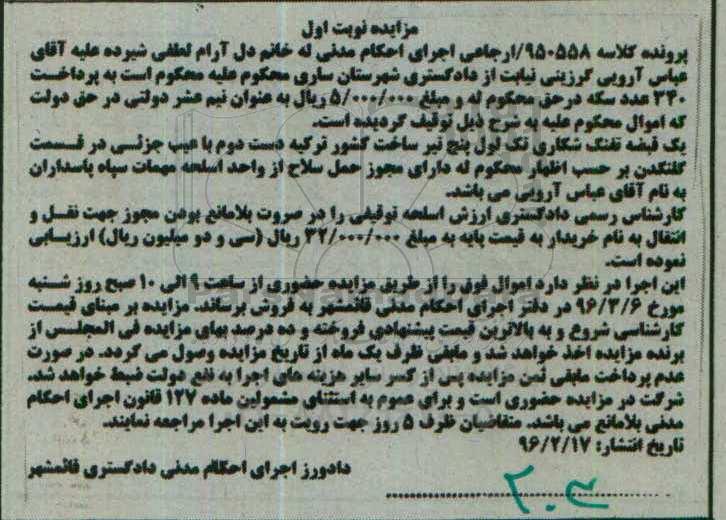 مزایده نوبت اول
پرونده کلاسه ۹۵۰۵۵۸/ارجاعی اجرای احکام مدنی له خانم دل آرام لطفی شیرده علیه آقای
عباس آرویی گرزینی نیابت از دادگستری شهرستان ساری محکوم علیه محکوم است به پرداخت
۳۴۰ عدد سکه درحق محکوم له و مبلغ ۵/۰۰۰/۰۰۰ ریال به عنوان نیم عشر دولتی در حق دولت
که اموال محکوم علیه به شرح ذیل توقیف گردیده است.
یک قبضه تفنگ شکاری تک لول پنج تیر ساخت کشور ترکیه دست دوم با عیب جزئی در قسمت
گلنگدن بر حسب اظهار محکوم له دارای مجوز حمل سلاح از واحد اسلحه مهمات سپاه پاسداران
به نام آقای عباس آرویی می باشد.
کارشناس رسمی دادگستری ارزش اسلحه توقیفی را در صروت بلامانع بودن مجوز جهت نقل و
انتقال به نام خریدار به قیمت پایه به مبلغ ۳۲/۰۰۰/۰۰۰ ریال (سی و دو میلیون ریال) ارزیابی
نموده است.
این اجرا در نظر دارد اموال فوق را از طریق مزایده حضوری از ساعت ۹ الی ۱۰ صبح روز شنبه
مورخ ۹۶/۳/۶ در دفتر اجرای احکام مدنی قائمشهر به فروش برساند. مزایده بر مبنای قیمت
کارشناسی شروع و به بالاترین قیمت پیشنهادی فروخته و ده درصد بهای مزایده فی المجلس از
برنده مزایده اخذ خواهد شد و مابقی ظرف یک ماه از تاریخ مزایده وصول می گردد. در صورت
عدم پرداخت مابقی ثمن مزایده پس از کسر سایر هزینه های اجرا به نفع دولت ضبط خواهد شد.
شرکت در مزایده حضوری است و برای عموم به استثنای مشمولین ماده ۱۲۷ قانون اجرای احکام
مدنی بلامانع می باشد. متقاضیان ظرف ۵ روز جهت رویت به این اجرا مراجعه نمایند.
تاریخ انتشار: ۹۶/۲/۱۷
دادورز اجرای احکام مدنی دادگستری قائمشهر